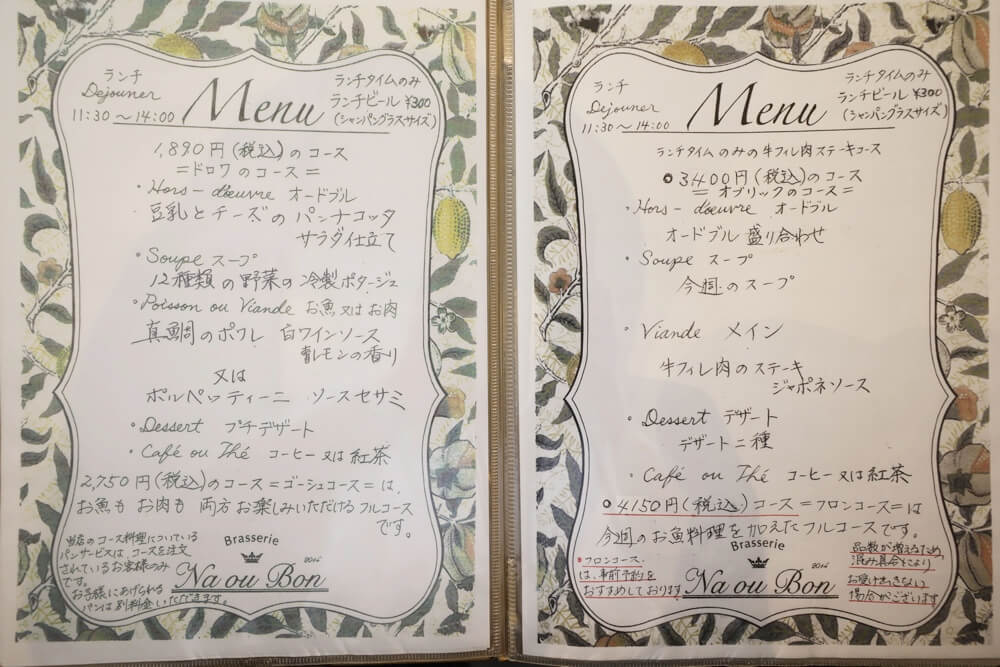 ランチ
Dejouner
11:30～14:00
Menu
ランチタイムのみ
ランチビール ¥300
(シャンパングラスサイズ)
1,890円(税込)のコース
=ドロワのコース=
・Hors-d'oeuvre オードブル
豆乳とチーズの パンナコッタ
サラダ仕立て
・Soupe スープ
12種類の野菜の冷製ポタージュ
・Poisson ou Viande お魚又はお肉
真鯛のポワレ 白ワインソース
青レモンの香り
又は
ポルペッティーニ ソースセサミ
・Dessert プチデザート
・Café ou Thé コーヒー又は紅茶
2,750円(税込)のコース=ゴーシュコース=は、
お魚も お肉も 両方お楽しみいただけるフルコース
です。
当店のコース料理についている
パンサービスは、コースを注文
されているお客様のみ
です。
お子様にあげられる
パンは別料金いただきます。
Brasserie
2014
Na ou Bon
ランチ
Dejouner
11:30～14:00
Menu
ランチタイムのみ
ランチビール ¥300
(シャンパングラスサイズ)
ランチタイムのみの牛フィレ肉ステーキコース
○3400円(税込)のコース
=オブリックのコース=
・Hors-d'oeuvre オードブル
オードブル 盛り合わせ
・Soupe スープ
今週のスープ
・Viande メイン
牛フィレ肉のステーキ
ジャポネソース
・Dessert デザート
デザート二種
・Café ou Thé コーヒー又は紅茶
○4150円(税込)コース=フロンコース=は
今週のお魚料理を加えたフルコースです。
*フロンコース
は、事前予約を
おすすめしております
Brasserie
2014
Na ou Bon
品数が増えるため
混み具合により
お受けできない
場合がございます